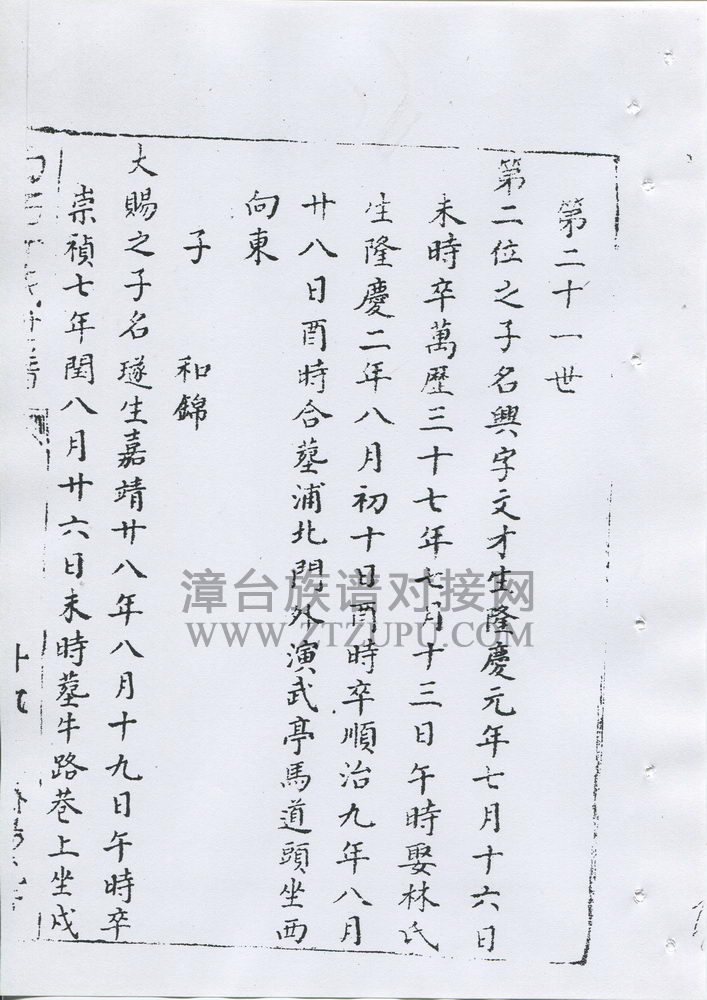 第二十一世
第二位之子名興字文才生隆慶元年七月十六日
未時卒萬歷三十七年七月十三日午時娶林氏
生隆慶二年八月初十日酉時卒順治九年八月
廿八日酉時合墓浦北門外演武亭馬道頭坐西
向東
子 和錦
大賜之子名璲生嘉靖廿八年八月十九日午時卒
崇禎七年閏八月廿六日未時墓牛路巷上坐戌
漳台族谱对接网
WWW.ZTZUPU.COM